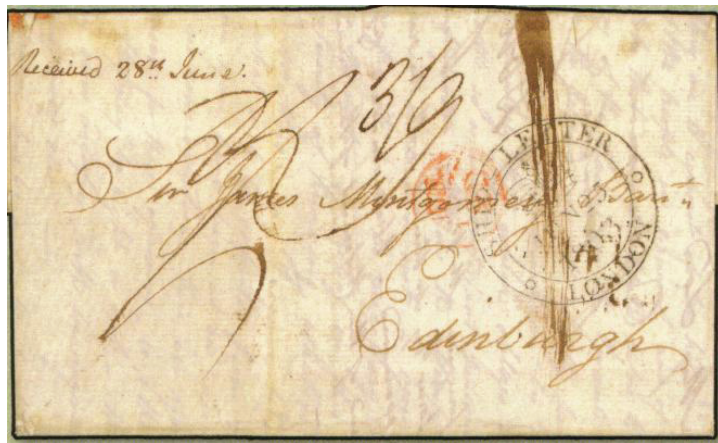 Received 28th June.
3/9
SHIP LETTER
LONDON
Sir James Montgomery Bart.
Edinburgh